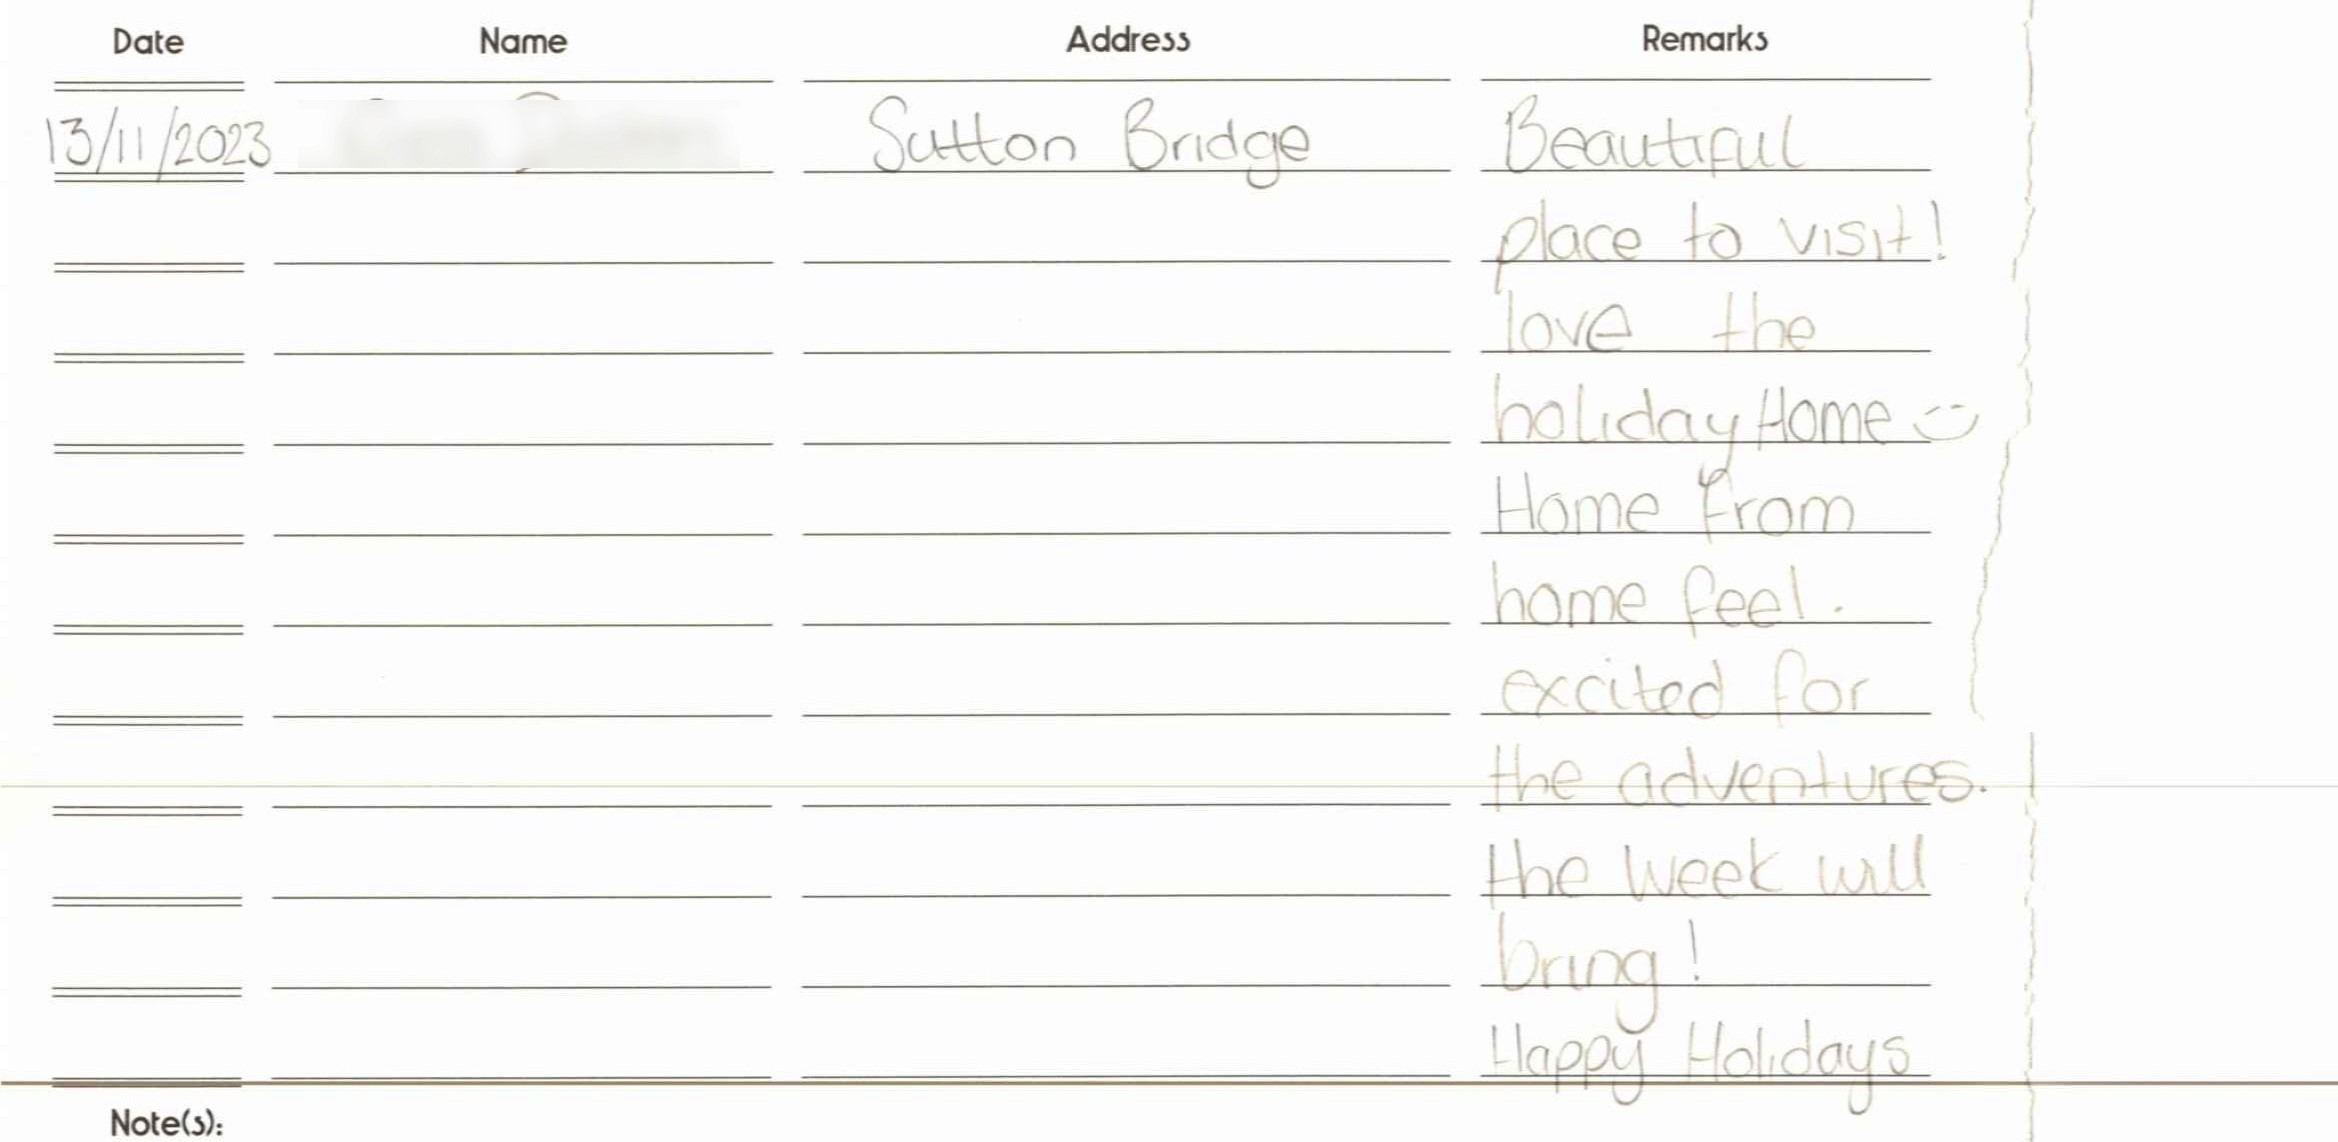 Date Name Address Remarks
13/11/2023 Sutton Bridge Beautiful
place to visit!
love the
holiday Home
Home From
home feel.
excited for
the adventures.
the week will
bring!
Happy Holidays
Note(s):